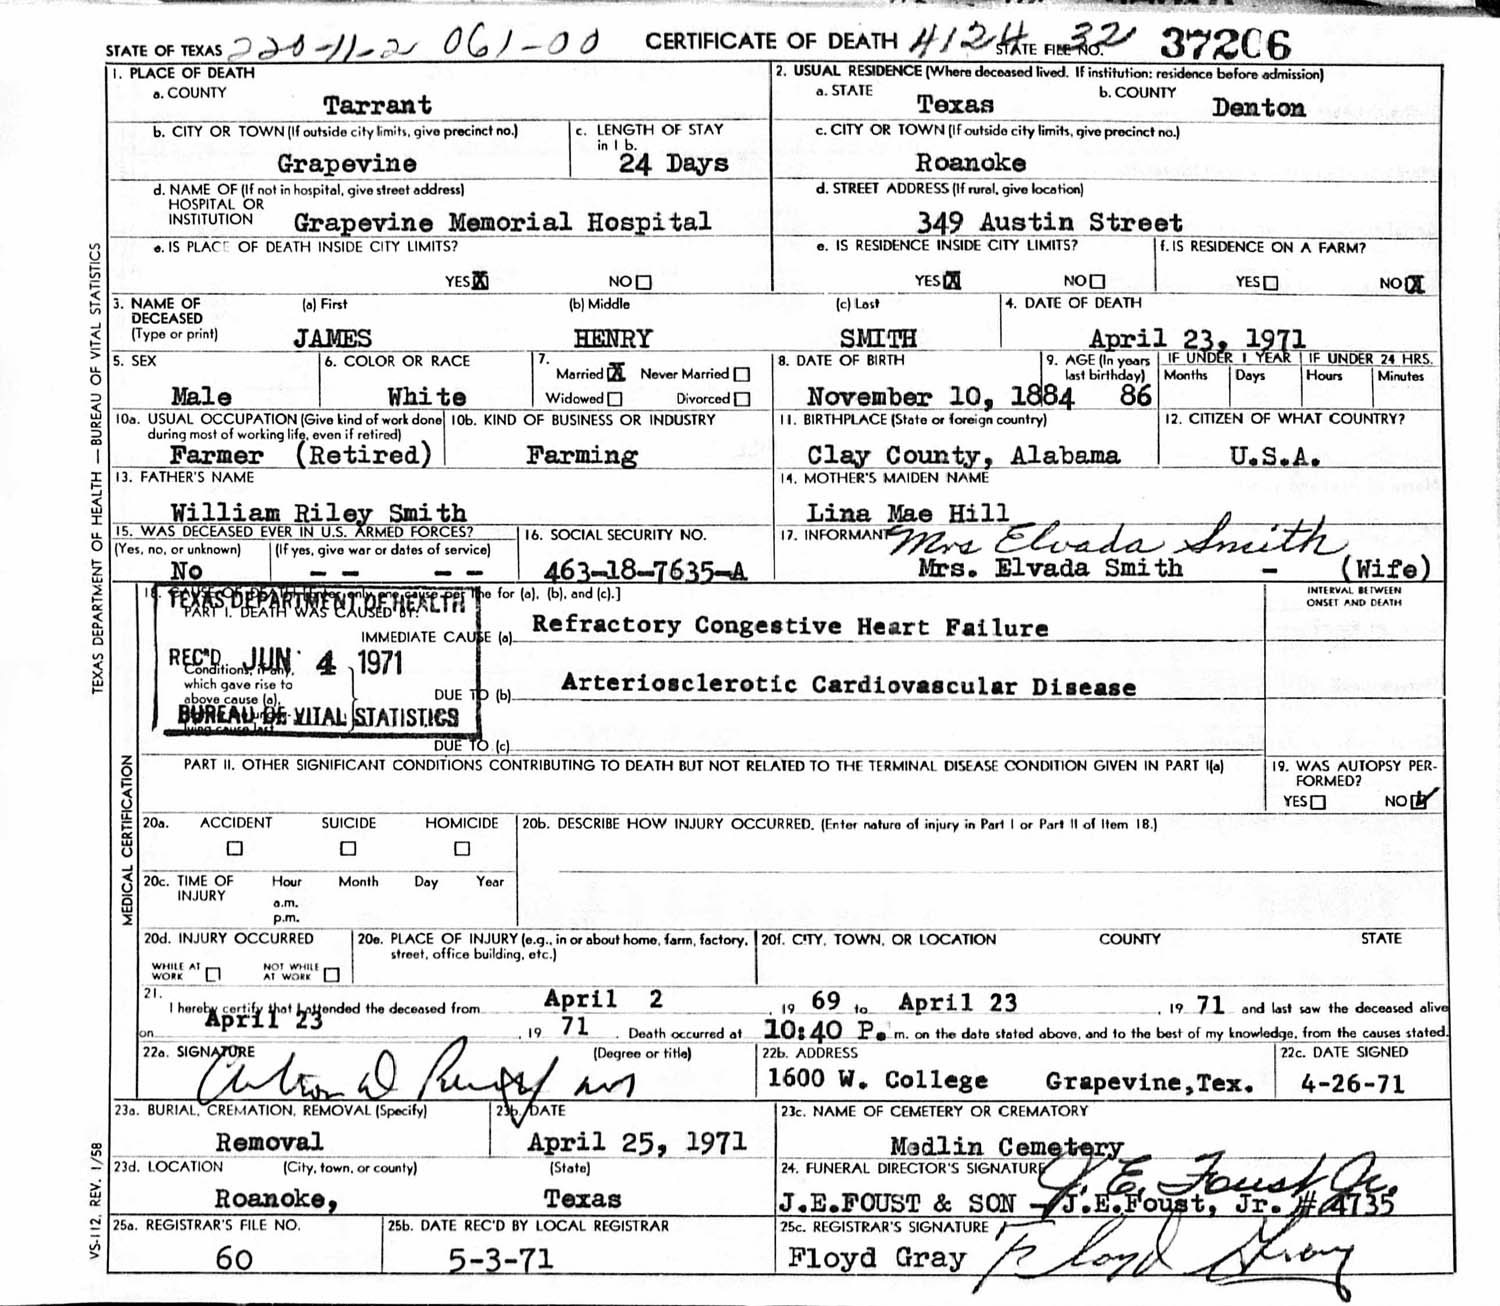 STATE OF TEXAS 220-11-2 061-00 CERTIFICATE OF DEATH 4124 STATE FILE NO. 32 37206
1. PLACE OF DEATH
a. COUNTY
Tarrant
2. USUAL RESIDENCE (Where deceased lived. If institution: residence before admission)
a. STATE Texas b. COUNTY Denton
b. CITY OR TOWN (If outside city limits, give precinct no.)
Grapevine
c. LENGTH OF STAY in 1 b.
24 Days
c. CITY OR TOWN (If outside city limits, give precinct no.)
Roanoke
d. NAME OF (If not in hospital, give street address)
HOSPITAL OR
INSTITUTION Grapevine Memorial Hospital
d. STREET ADDRESS (If rural, give location)
349 Austin Street
e. IS PLACE OF DEATH INSIDE CITY LIMITS?
YES X NO
e. IS RESIDENCE INSIDE CITY LIMITS?
YES X NO
f. IS RESIDENCE ON A FARM?
YES NO X
3. NAME OF DECEASED (Type or print)
(a) First (b) Middle (c) Last
JAMES HENRY SMITH
4. DATE OF DEATH
April 23, 1971
5. SEX
Male
6. COLOR OR RACE
White
7.
Married X Never Married
Widowed Divorced
8. DATE OF BIRTH
November 10, 1884
9. AGE (In years last birthday)
86
IF UNDER 1 YEAR IF UNDER 24 HRS.
Months Days Hours Minutes
10a. USUAL OCCUPATION (Give kind of work done during most of working life, even if retired)
Farmer (Retired)
10b. KIND OF BUSINESS OR INDUSTRY
Farming
11. BIRTHPLACE (State or foreign country)
Clay County, Alabama
12. CITIZEN OF WHAT COUNTRY?
U.S.A.
13. FATHER'S NAME
William Riley Smith
14. MOTHER'S MAIDEN NAME
Lina Mae Hill
15. WAS DECEASED EVER IN U.S. ARMED FORCES?
(Yes, no, or unknown) (If yes, give war or dates of service)
No -- --
16. SOCIAL SECURITY NO.
463-18-7635-A
17. INFORMANT Mrs Elvada Smith
Mrs. Elvada Smith - (Wife)
18. CAUSE OF DEATH [Enter only one cause per line for (a), (b), and (c).]
PART I. DEATH WAS CAUSED BY:
INTERVAL BETWEEN ONSET AND DEATH
TEXAS DEPARTMENT OF HEALTH
REC'D JUN 4 1971
BUREAU OF VITAL STATISTICS
IMMEDIATE CAUSE (a) Refractory Congestive Heart Failure
Conditions, if any,
which gave rise to
above cause (a),
lying cause last
DUE TO (b) Arteriosclerotic Cardiovascular Disease
DUE TO (c)
PART II. OTHER SIGNIFICANT CONDITIONS CONTRIBUTING TO DEATH BUT NOT RELATED TO THE TERMINAL DISEASE CONDITION GIVEN IN PART I(a)
19. WAS AUTOPSY PERFORMED?
YES NO
20a. ACCIDENT SUICIDE HOMICIDE
20b. DESCRIBE HOW INJURY OCCURRED. (Enter nature of injury in Part I or Part II of Item 18.)
20c. TIME OF INJURY Hour Month Day Year
a.m.
p.m.
20d. INJURY OCCURRED
WHILE AT WORK NOT WHILE AT WORK
20e. PLACE OF INJURY (e.g., in or about home, farm, factory, street, office building, etc.)
20f. CITY, TOWN, OR LOCATION COUNTY STATE
21.
I hereby certify that I attended the deceased from April 2, 19 69 to April 23, 19 71 and last saw the deceased alive
on April 23, 19 71. Death occurred at 10:40 P. m. on the date stated above, and to the best of my knowledge, from the causes stated.
22a. SIGNATURE (Degree or title)
22b. ADDRESS
1600 W. College Grapevine, Tex.
22c. DATE SIGNED
4-26-71
23a. BURIAL, CREMATION, REMOVAL (Specify)
Removal
23b. DATE
April 25, 1971
23c. NAME OF CEMETERY OR CREMATORY
Medlin Cemetery
23d. LOCATION (City, town, or county) (State)
Roanoke, Texas
24. FUNERAL DIRECTOR'S SIGNATURE J. E. Foust Jr.
J.E.FOUST & SON - J.E.Foust, Jr. #4735
25a. REGISTRAR'S FILE NO.
60
25b. DATE REC'D BY LOCAL REGISTRAR
5-3-71
25c. REGISTRAR'S SIGNATURE
Floyd Gray Floyd Gray
TEXAS DEPARTMENT OF HEALTH — BUREAU OF VITAL STATISTICS
MEDICAL CERTIFICATION
VS-112, REV. 1/58